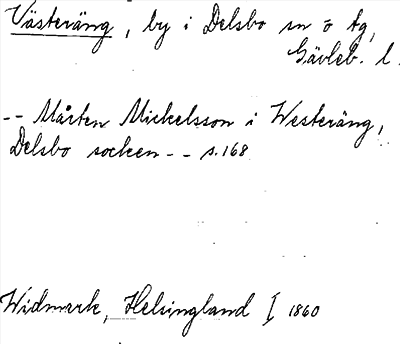 Västeräng, by i Delsbo sn o tg,
Gävleb. l.
-- Mårten Mickelsson i Westeräng,
Delsbo socken -- s. 168
Widmark, Helsingland I 1860